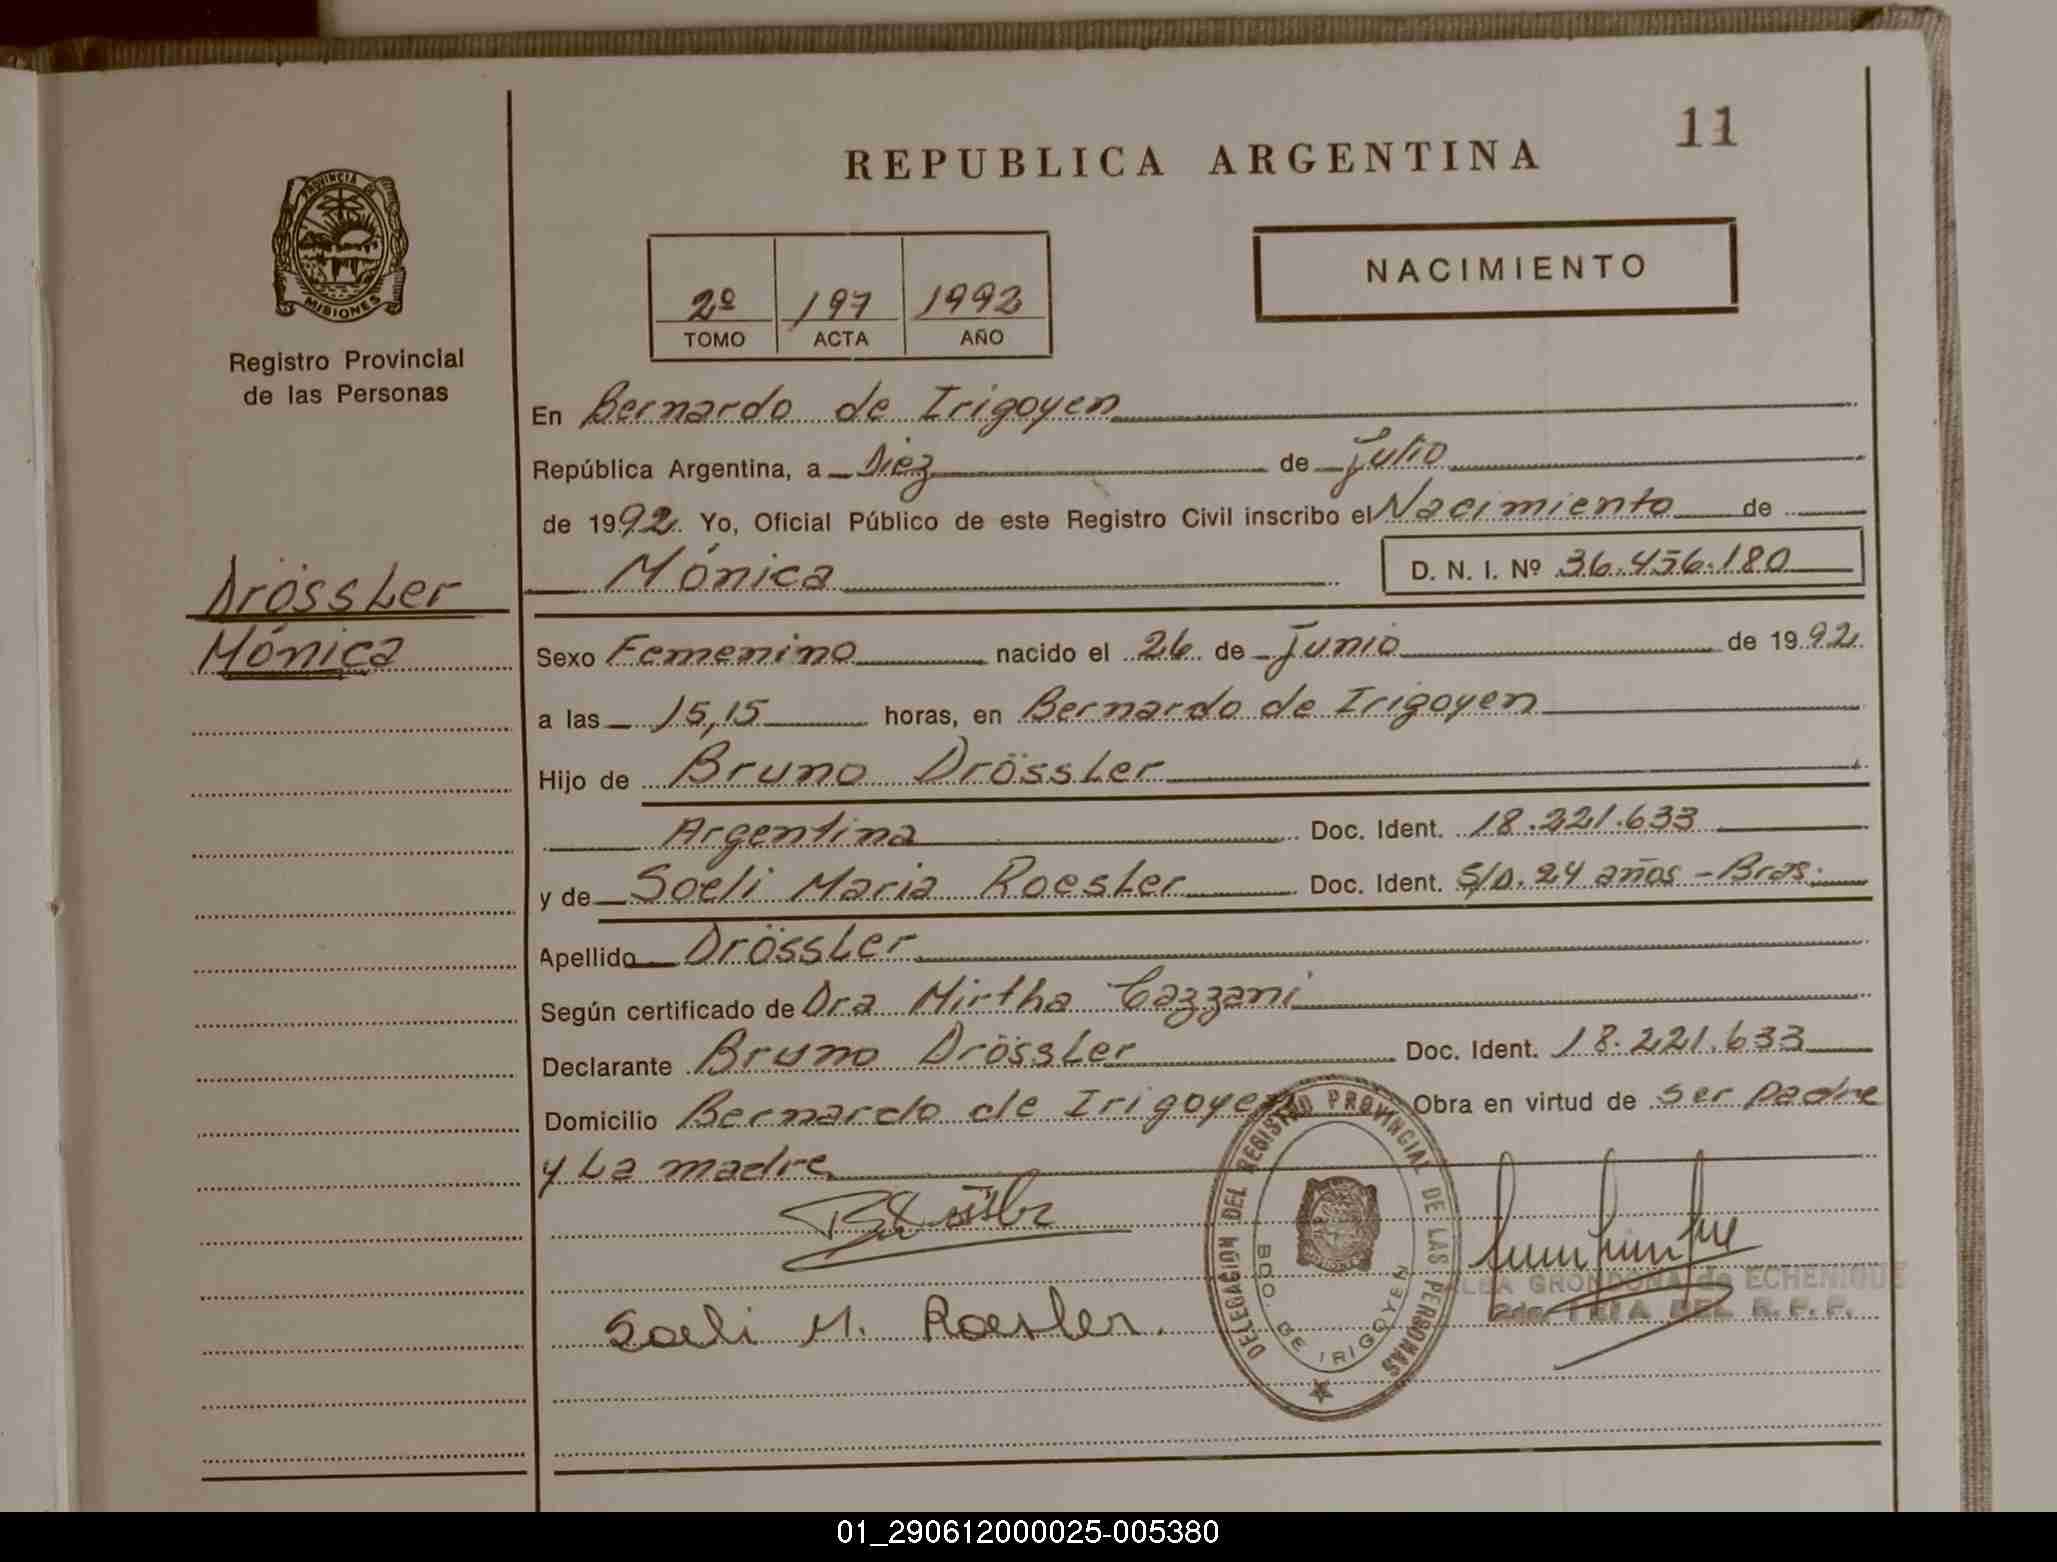 11
REPUBLICA ARGENTINA
PROVINCIA DE
MISIONES
Registro Provincial
de las Personas
NACIMIENTO
2º 197 1992
TOMO ACTA AÑO
En Bernardo de Irigoyen
República Argentina, a Diez de Julio
de 1992. Yo, Oficial Público de este Registro Civil inscribo el Nacimiento de
Mónica D. N. I. Nº 36.456.180
Drössler
Mónica
Sexo Femenino nacido el 26 de Junio de 1992
a las 15,15 horas, en Bernardo de Irigoyen
Hijo de Bruno Drössler
Argentina Doc. Ident. 18.221.633
y de Soeli Maria Roesler Doc. Ident. S/D. 24 años - Bras.
Apellido Drössler
Según certificado de Dra Mirtha Cazzani
Declarante Bruno Drössler Doc. Ident. 18.221.633
Domicilio Bernardo de Irigoyen Obra en virtud de ser padre
y La madre
DELEGACION DEL REGISTRO PROVINCIAL DE LAS PERSONAS
BDO. DE IRIGOYEN
ALBA GRONDONA de ECHENIQUE
DEL R.P.P.
Soeli M. Roesler.
01_290612000025-005380